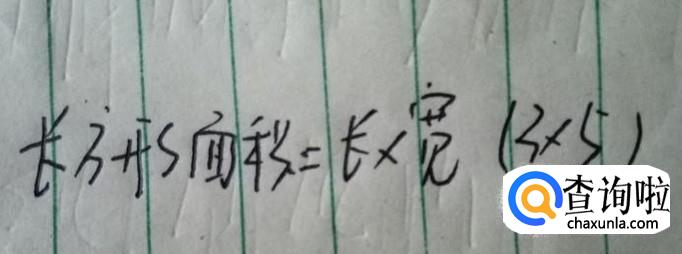 长方形面积=长×宽 (3×5)
查询啦
chaxunla.com